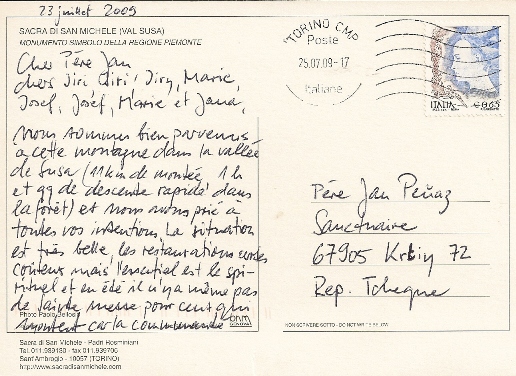 23 juillet 2009
SACRA DI SAN MICHELE (VAL SUSA)
MONUMENTO SIMBOLO DELLA REGIONE PIEMONTE
Cher Père Jan
chers Jiri Jiri Jiry, Marie,
Josef, Josef, Marie et Jana,
nous sommes bien parvenus
à cette montagne dans la vallée
de Susa (11 km de montée 1 h
et qq de descente rapide dans
la forêt) et nous avons prié à
toutes vos intentions. La situation
est très belle, les restaurations
mais l'essentiel est le spi-
rituel et en été il n'y a même pas
de sainte messe pour ceux qui
montent car la communauté
Photo Paolo Bellosi
Sacra di San Michele - Padri Rosminiani
Tel. 011.939180 - fax 011.939706
Sant'Ambrogio - 10057 (TORINO)
http://www.sacradisanmichele.com
TORINO CMP
Poste
25.07.09-17
Italiane
ITALIA
€0,65
Père Jan Peňáz
Sanctuaire
67905 Křtiny 72
Rep. Tcheque
NON SCRIVERE SOTTO - DO NOT WRITE BELOW